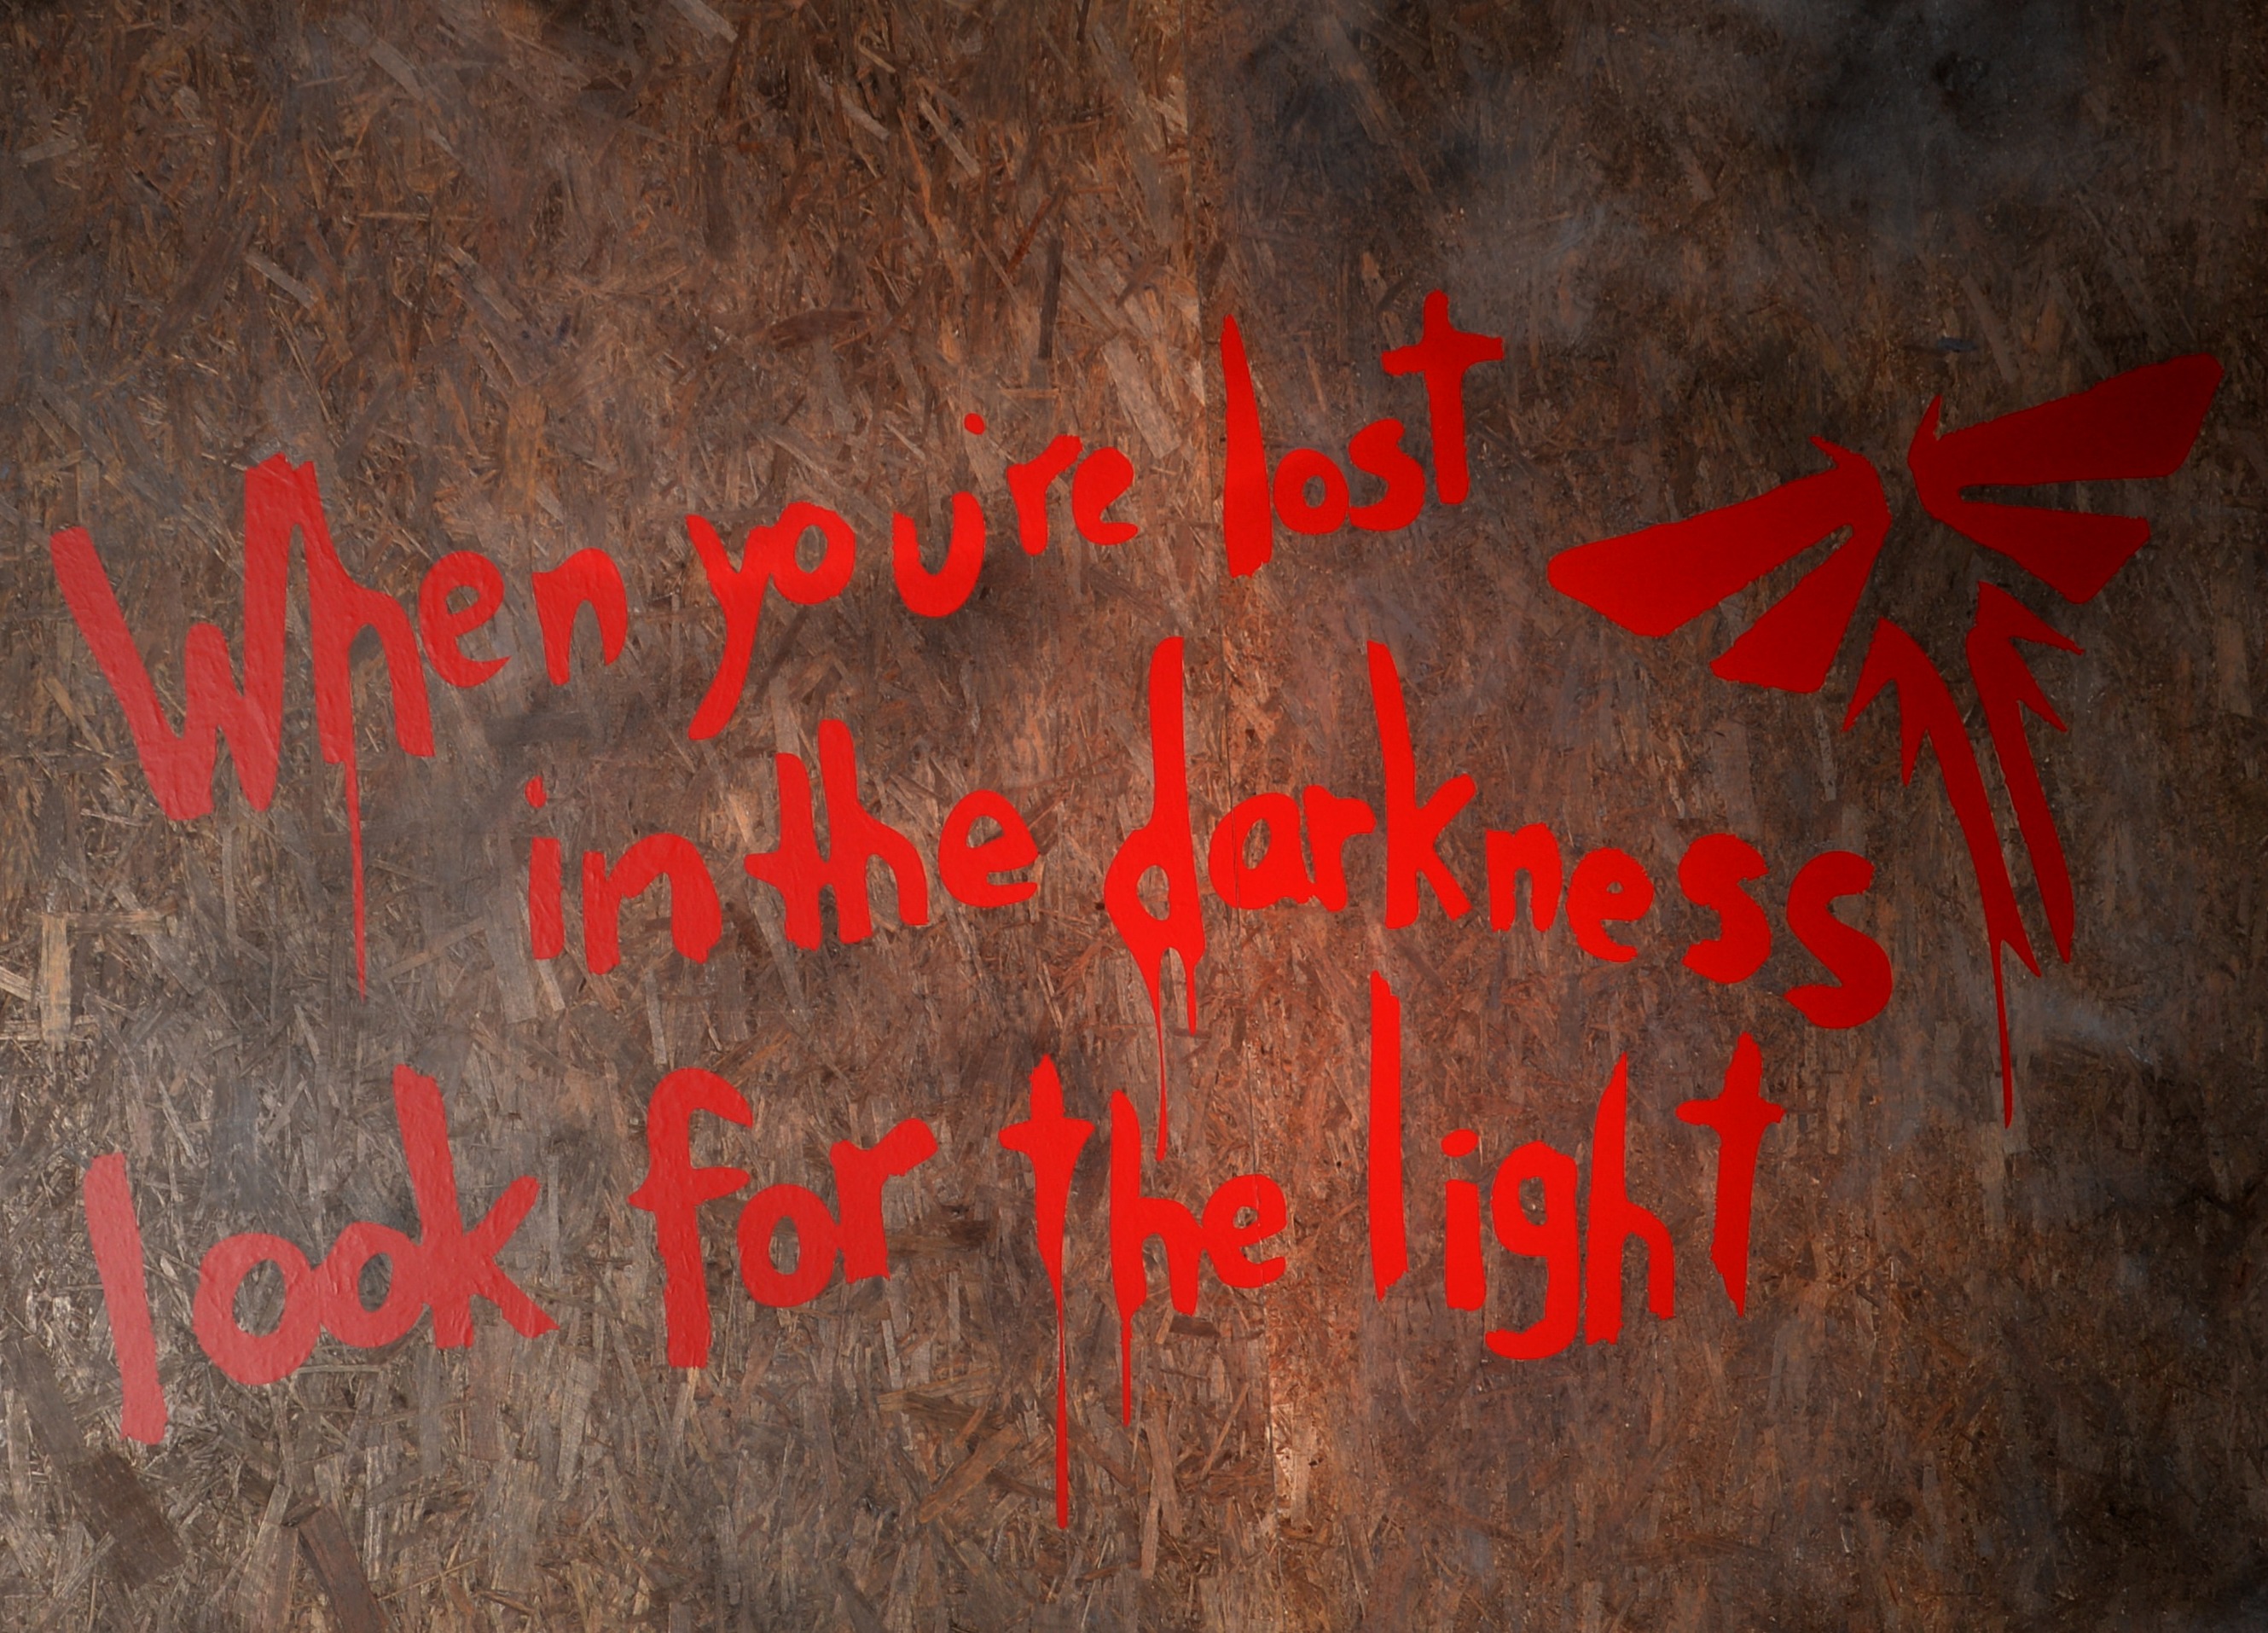 When you're lost
in the darkness
look for the light